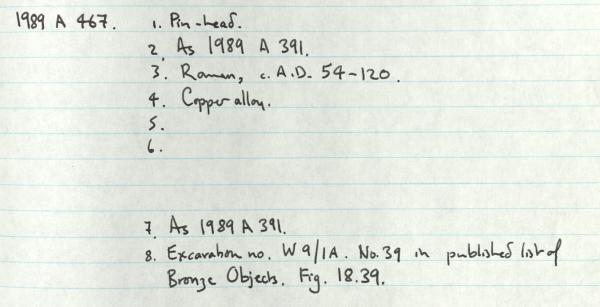 1989 A 467. 1. Pin-head.
2. As 1989 A 391.
3. Roman, c. A.D. 54-120.
4. Copper alloy.
5.
6.
7. As 1989 A 391.
8. Excavation no. W9/1A. No. 39 in published list of
Bronze Objects. Fig. 18.39.